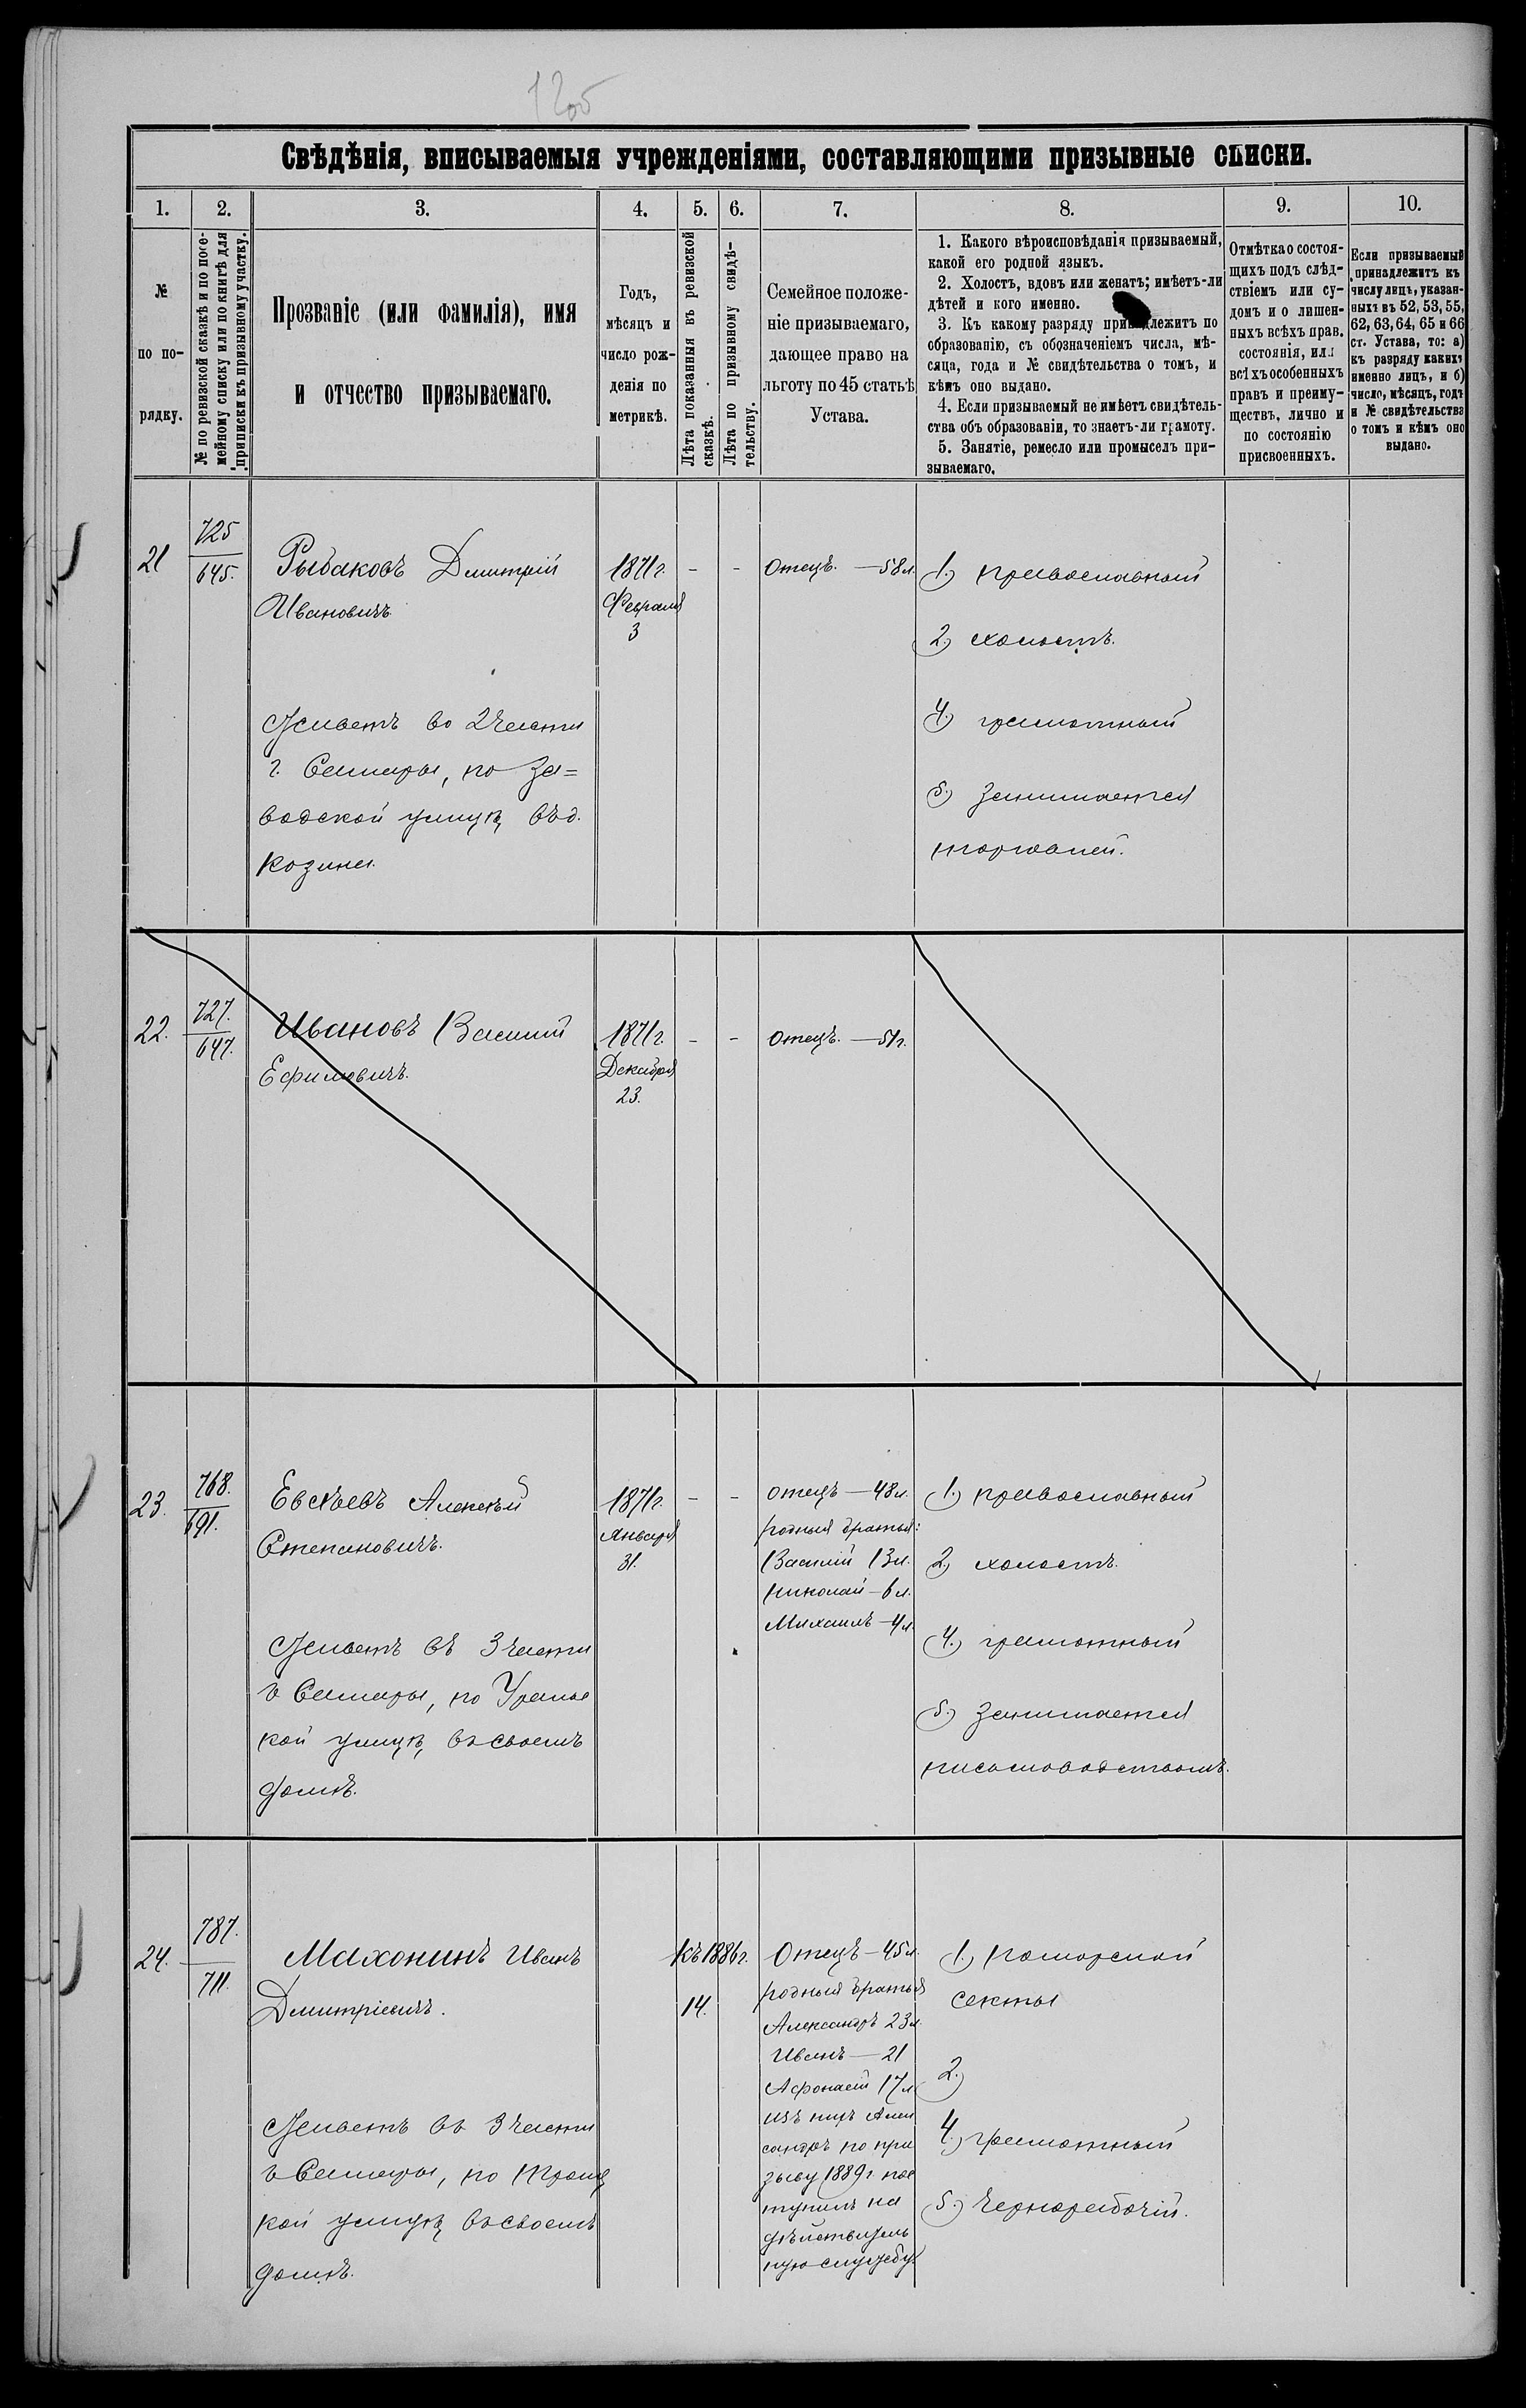 1205
Свѣдѣнія, вписываемыя учрежденіями, составляющими призывные списки.
1. 2. 3. 4. 5. 6. 7. 8. 9. 10.
№
по по-
рядку.
№ по ревизской сказкѣ и по посе-
мейному списку или по книгѣ для
приписки къ призывному участку.
Прозваніе (или фамилія), имя
и отчество призываемаго.
Годъ,
мѣсяцъ и
число рож-
денія по
метрикѣ.
Лѣта показанныя въ ревизской
сказкѣ.
Лѣта по призывному свидѣ-
тельству.
Семейное положе-
ніе призываемаго,
дающее право на
льготу по 45 статьѣ
Устава.
1. Какого вѣроисповѣданія призываемый,
какой его родной языкъ.
2. Холостъ, вдовъ или женатъ; имѣетъ-ли
дѣтей и кого именно.
3. Къ какому разряду принадлежитъ по
образованію, съ обозначеніемъ числа, мѣ-
сяца, года и № свидѣтельства о томъ, и
кѣмъ оно выдано.
4. Если призываемый не имѣетъ свидѣтель-
ства объ образованіи, то знаетъ-ли грамоту.
5. Занятіе, ремесло или промыселъ при-
зываемаго.
Отмѣтка о состоя-
щихъ подъ слѣд-
ствіемъ или су-
домъ и о лишен-
ныхъ всѣхъ прав.
состоянія, или
всѣхъ особенныхъ
правъ и преиму-
ществъ, лично и
по состоянію
присвоенныхъ.
Если призываемый
принадлежитъ къ
числу лицъ, указан-
ныхъ въ 52, 53, 55,
62, 63, 64, 65 и 66
ст. Устава, то: а)
къ разряду какихъ
именно лицъ, и б)
число, мѣсяцъ, годъ
и № свидѣтельства
о томъ и кѣмъ оно
выдано.
21
725
645.
Рыбаковъ Дмитрій
Ивановичъ
Живетъ во 2 части
г. Самары, по За=
водской улицѣ, въ д.
Козина.
1871 г.
Февраля
3
- -
Отецъ. — 58 л.
1.) православный
2.) холостъ.
4.) грамотный
5.) Занимается
торговлей.
22.
727.
647.
Ивановъ Василій
Ефимовичъ.
1871 г.
Декабря
23.
- -
Отецъ. — 51 г.
23.
768.
691.
Евсѣевъ Алексѣй
Степановичъ.
Живетъ въ 3 части
г. Самары, по Уральс
кой улицѣ, въ своемъ
домѣ.
1871 г.
Января
31.
- -
отецъ — 48 л.
родныя братья:
Василій 13 л.
Николай — 6 л.
Михаилъ — 4 л.
1.) православный
2.) холостъ.
4.) грамотный
5.) Занимается
письмоводствомъ.
24.
787.
711.
Махонинъ Иванъ
Дмитріевичъ.
Живетъ въ 3 части
г. Самары, по Троиц
кой улицѣ въ своемъ
домѣ.
Къ 1886 г.
14.
Отецъ — 45 л.
родныя братья
Александръ 23 л.
Иванъ — 21
Афонасій 17 л.
изъ нихъ Алек
сандръ по при
зыву 1889 г. пос
тупилъ на
дѣйствитель
ную службу.
1.) Поморской
секты
2.)
4.) грамотный
5.) Чернорабочій.